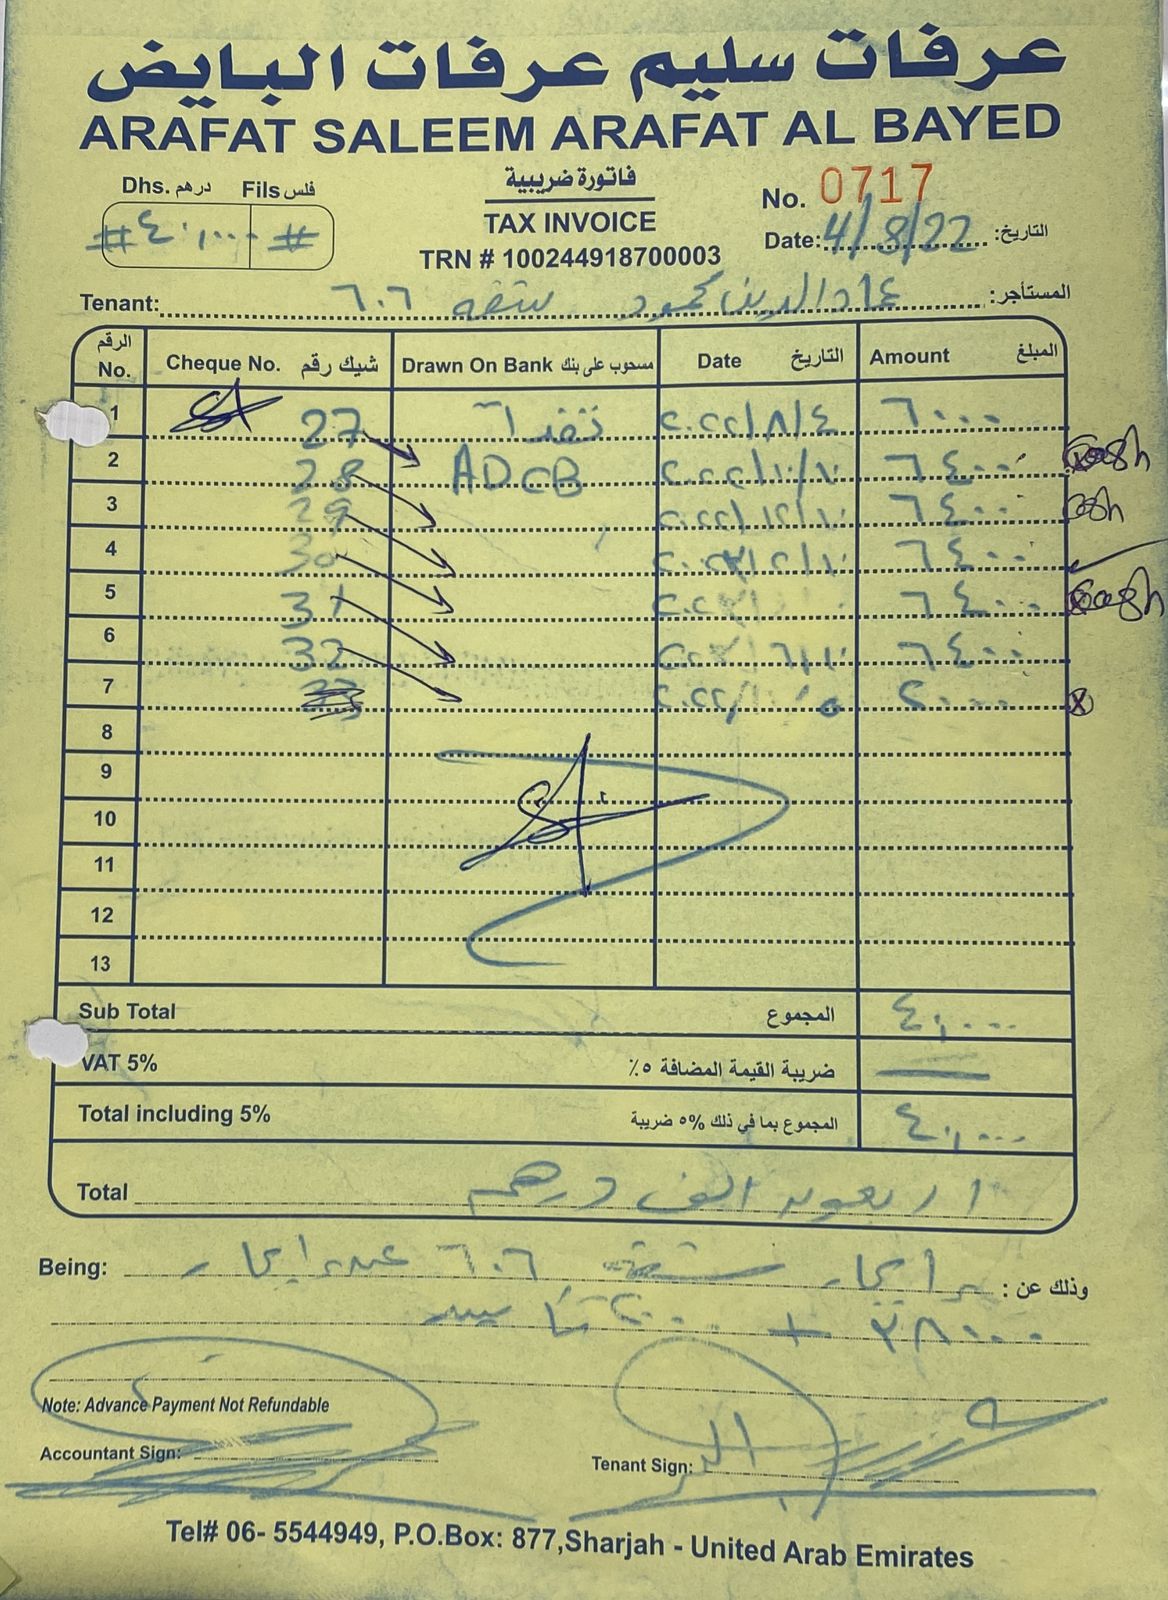 عرفات سليم عرفات البايض
ARAFAT SALEEM ARAFAT AL BAYED
Dhs. درهم Fils فلس
# ٤٠,٠٠٠ #
فاتورة ضريبية
TAX INVOICE
TRN # 100244918700003
No. 0717
Date: 4/8/22 التاريخ:
Tenant: عماد الدين محمود شقه ٦٠٦ المستأجر:
الرقم No. Cheque No. شيك رقم Drawn On Bank مسحوب على بنك Date التاريخ Amount المبلغ
1 27 نقداً ٢٠٢٢/٨/٤ ٦٠٠٠
2 28 ADCB ٢٠٢٢/١٠/١٠ ٦٤٠٠ cash
3 29 ٢٠٢٢/١٢/١٠ ٦٤٠٠ cash
4 30 ٢/١٠ ٦٤٠٠
5 31 ٦٤٠٠ cash
6 32 ٦/١٠ ٦٤٠٠
7 ٢٠٠٠
8
9
10
11
12
13
Sub Total المجموع ٤٠,٠٠٠
VAT 5% ضريبة القيمة المضافة ٥٪
Total including 5% المجموع بما في ذلك ٥% ضريبة ٤٠,٠٠٠
Total اربعون الف درهم
Being: ايجار شقة ٦٠٦ ايجار وذلك عن :
٣٨٠٠٠ + ٢٠٠٠ تأمين
Note: Advance Payment Not Refundable
Accountant Sign:
Tenant Sign:
Tel# 06- 5544949, P.O.Box: 877,Sharjah - United Arab Emirates